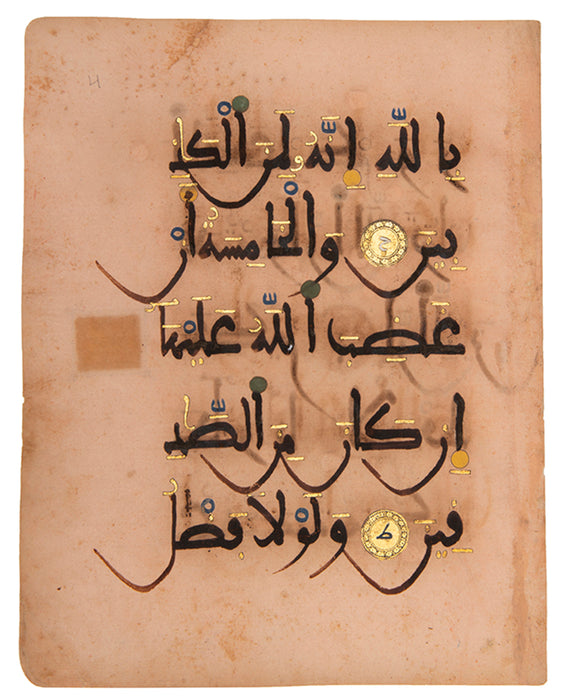 بِاللَّهِ إِنَّهُ لَمِنَ ٱلْكَٰذِ
بِينَ ح وَٱلْخَامِسَةَ أَنَّ
غَضَبَ ٱللَّهِ عَلَيْهَا
إِن كَانَ مِنَ ٱلصَّٰدِ
قِينَ ط وَلَوْلَا فَضْلُ